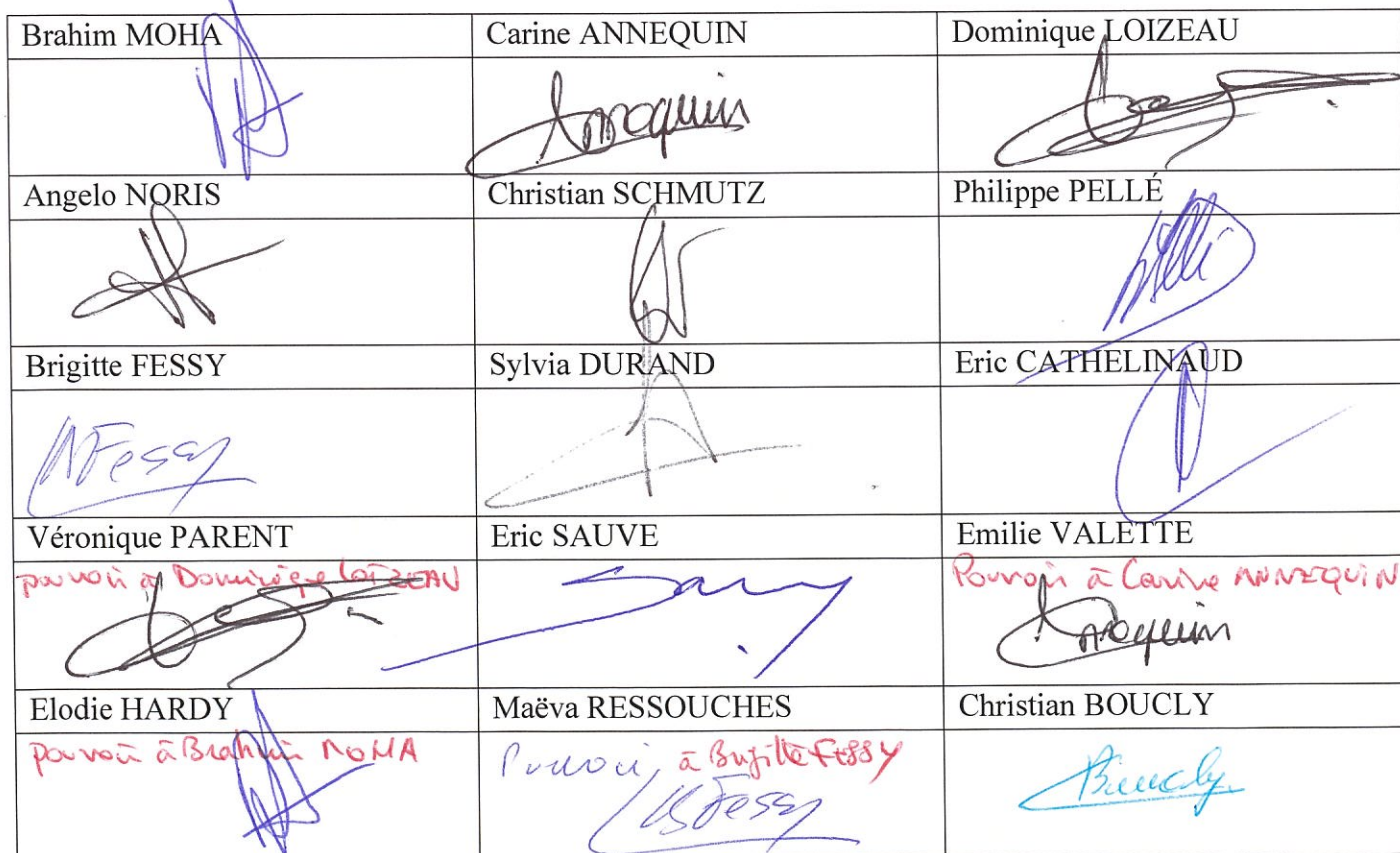 Brahim MOHA
Carine ANNEQUIN
Dominique LOIZEAU
Annequin
Angelo NORIS
Christian SCHMUTZ
Philippe PELLÉ
Brigitte FESSY
Sylvia DURAND
Eric CATHELINAUD
BFessy
Véronique PARENT
Eric SAUVE
Emilie VALETTE
pouvoir à Dominique LOIZEAU
Pouvoir à Carine ANNEQUIN
Annequin
Elodie HARDY
Maëva RESSOUCHES
Christian BOUCLY
pouvoir à Brahim MOHA
Pouvoir à Brigitte FESSY
BFessy
Boucly